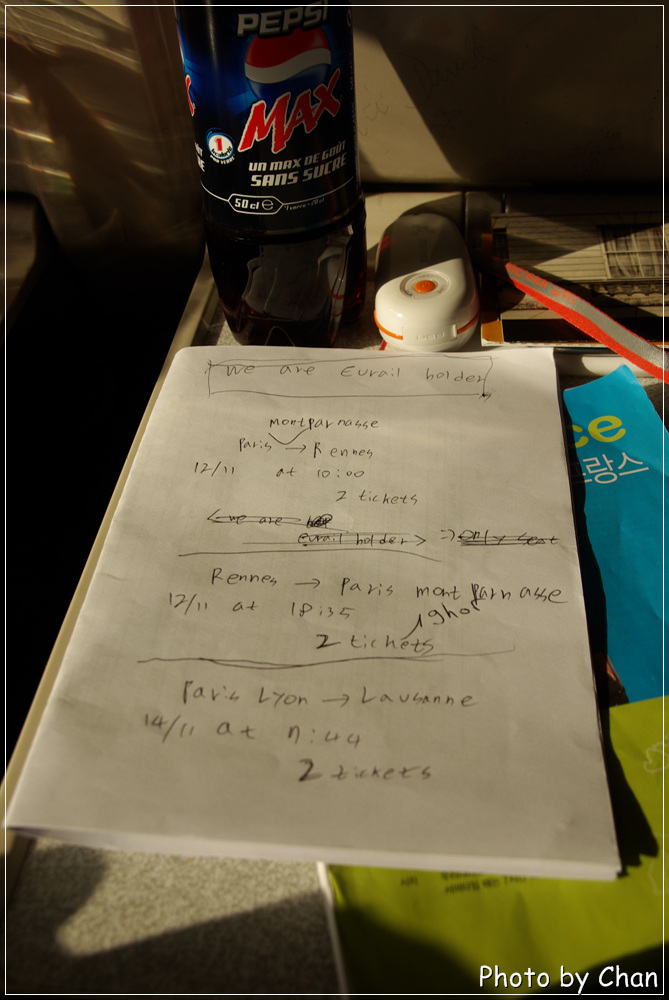 PEPSI
MAX
UN MAX DE GOÛT
SANS SUCRE
50 cl e
we are Eurail holder
montparnasse
Paris → Rennes
12/11 at 10:00
2 tickets
<we are
eurail holder> ⇒ only seat
Rennes → Paris montparnasse
12/11 at 18:35
2 tickets
Paris Lyon → Lausanne
14/11 at 17:44
2 tickets
ce
랑스
Photo by Chan